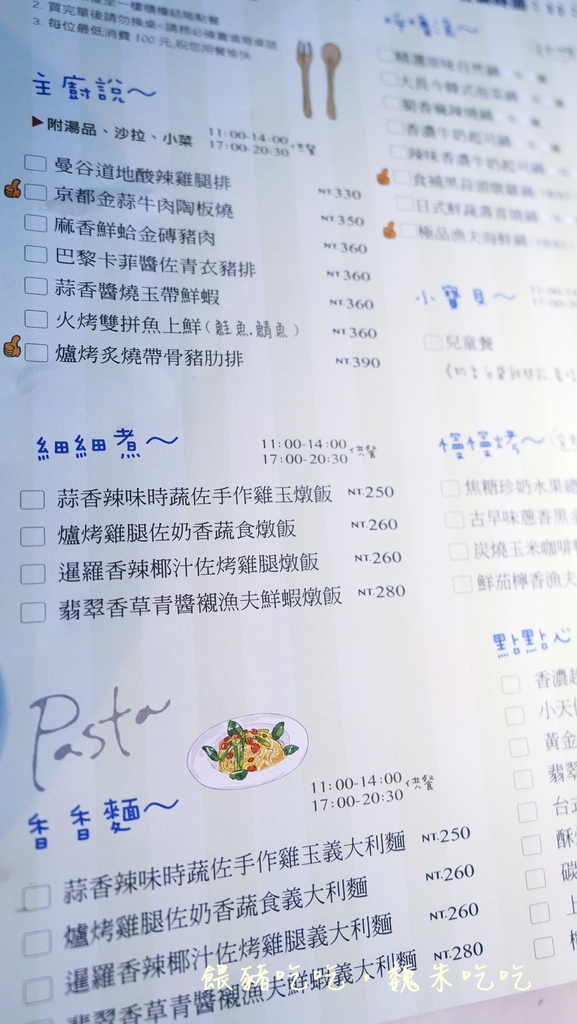 2. 買完單後請勿換桌
3. 每位最低消費 100 元,祝您用餐愉快
主廚說～
▶附湯品、沙拉、小菜 11:00-14:00 17:00-20:30 供餐
曼谷道地酸辣雞腿排 NT.330
京都金蒜牛肉陶板燒 NT.350
麻香鮮蛤金磚豬肉 NT.360
巴黎卡菲醬佐青衣豬排 NT.360
蒜香醬燒玉帶鮮蝦 NT.360
火烤雙拼魚上鮮(鮭魚.鯖魚) NT.360
爐烤炙燒帶骨豬肋排 NT.390
細細煮～ 11:00-14:00 17:00-20:30 供餐
蒜香辣味時蔬佐手作雞玉燉飯 NT.250
爐烤雞腿佐奶香蔬食燉飯 NT.260
暹羅香辣椰汁佐烤雞腿燉飯 NT.260
翡翠香草青醬襯漁夫鮮蝦燉飯 NT.280
Pasta
香香麵～ 11:00-14:00 17:00-20:30 供餐
蒜香辣味時蔬佐手作雞玉義大利麵 NT.250
爐烤雞腿佐奶香蔬食義大利麵 NT.260
暹羅香辣椰汁佐烤雞腿義大利麵 NT.260
翡翠香草青醬襯漁夫鮮蝦義大利麵 NT.280
精選原味自然鍋
大長今韓式泡菜鍋
蜀香麻辣燒鍋
香濃牛奶起司鍋
辣味香濃牛奶起司鍋
日式鮮蔬壽喜燒鍋
極品漁夫海鮮鍋
小寶貝～
兒童餐
慢慢烤～
焦糖珍奶水果
古早味蔥香黑
炭燒玉米咖啡
鮮茄檸香漁夫
點點心
香濃
小天
黃金
翡翠
台式
酥
碳
上
餵豬吃吃・魏朱吃吃